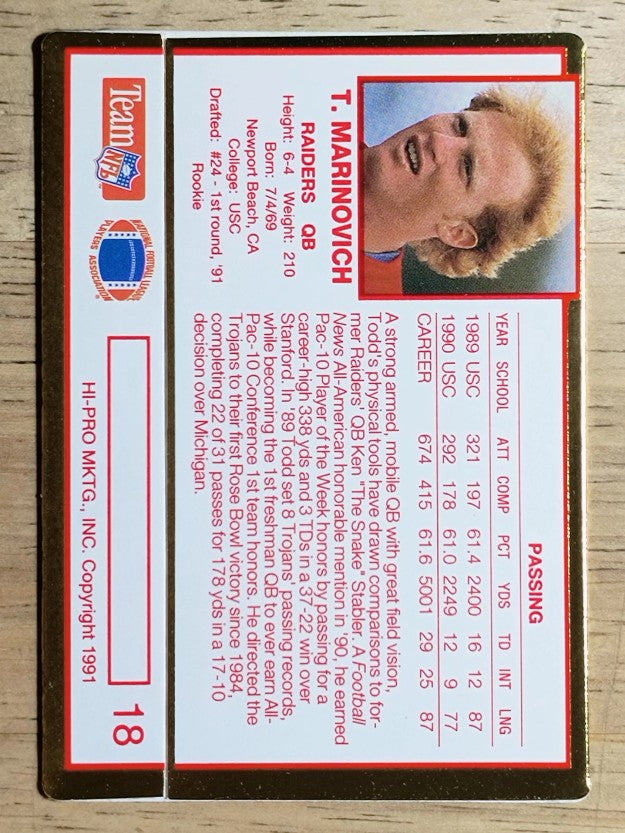 T. MARINOVICH
RAIDERS QB
Height: 6-4 Weight: 210
Born: 7/4/69
Newport Beach, CA
College: USC
Drafted: #24 - 1st round, '91
Rookie
PASSING
YEAR SCHOOL ATT COMP PCT YDS TD INT LNG
1989 USC 321 197 61.4 2400 16 12 87
1990 USC 292 178 61.0 2249 12 9 77
CAREER 674 415 61.6 5001 29 25 87
A strong armed, mobile QB with great field vision,
Todd's physical tools have drawn comparisons to for-
mer Raiders' QB Ken "The Snake" Stabler. A Football
News All-American honorable mention in '90, he earned
Pac-10 Player of the Week honors by passing for a
career-high 338 yds and 3 TDs in a 37-22 win over
Stanford. In '89 Todd set 8 Trojans' passing records,
while becoming the 1st freshman QB to ever earn All-
Pac-10 Conference 1st team honors. He directed the
Trojans to their first Rose Bowl victory since 1984,
completing 22 of 31 passes for 178 yds in a 17-10
decision over Michigan.
Team
NFL
NATIONAL FOOTBALL LEAGUE
PLAYERS ASSOCIATION
18
HI-PRO MKTG., INC. Copyright 1991